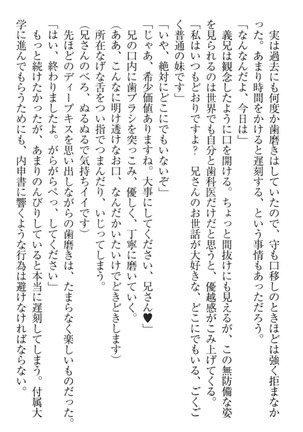 実は過去にも何度か歯磨きはしていたので、守も口移しのときほどは強く拒まなか
った。あまり時間をかけると遅刻する、という事情もあっただろう。
「なんなんだよ、今日は」
義兄は観念したように口を開ける。ちょっと間抜けにも見えるが、この無防備な姿
を見られるのは世界でも自分と歯科医だけだと思うと、優越感がこみ上げてくる。
「私はいつもどおりですよ? 兄さんのお世話が大好きな、どこにでもいる、ごくご
く普通の妹です」
「いや、絶対にどこにでもいないぞ」
「じゃあ、希少価値ありますね。大事にしてください、兄さん♥」
義兄の口内に歯ブラシを突っ込み、優しく、丁寧に磨いていく。
(ああ、こんなに明け透けなお口、なんだかいたいけでどきどきします)
所在なげな舌をつい指でつまんだり、いじってしまう。
(兄さんのべろ、ぬるぬるで気持ちイイです)
先ほどのディープキスを思い出しながらの歯磨きは、たまらなく楽しいものだった。
「はい、終わりましたよ。がらがらぺっ、してください」
もっと続けたかったが、あまりのんびりしていると本当に遅刻してしまう。付属大
学に進んでもらうためにも、内申書に響くような行為は避けなければならない。